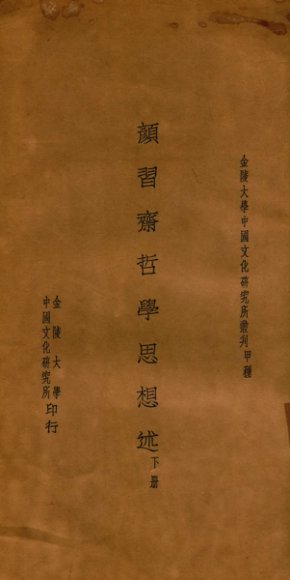 金陵大學中國文化研究所叢刊甲種
顏習齋哲學思想述下册
金陵大學
中國文化研究所印行